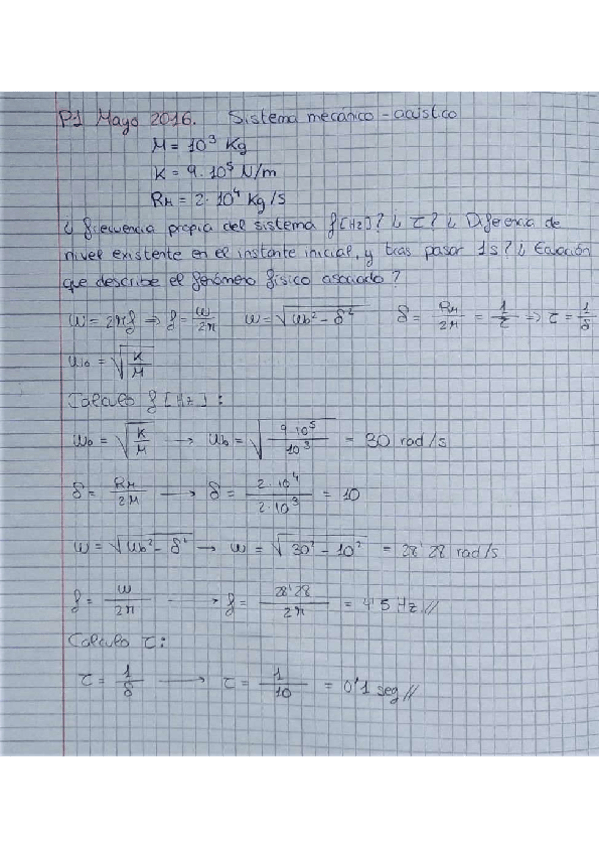 P1 Mayo 2016. Sistema mecánico-acústico
M = 10³ Kg
K = 9·10⁵ N/m
RM = 2·10⁴ Kg/s
¿ frecuencia propia del sistema f[Hz]? ¿ τ? ¿ Diferencia de
nivel existente en el instante inicial, y tras pasar 1s? ¿ Ecuación
que describe el fenómeno físico asociado ?
ω = 2πf ⇒ f = ω/2π ω = √(ω₀² - δ²) δ = RM/2M = 1/τ ⇒ τ = 1/δ
ω₀ = √(K/M)
Calculo f [Hz] :
ω₀ = √(K/M) → ω₀ = √(9·10⁵/10³) = 30 rad/s
δ = RM/2M → δ = 2·10⁴/2·10³ = 10
ω = √(ω₀² - δ²) → ω = √(30² - 10²) = 28'28 rad/s
f = ω/2π → f = 28'28/2π = 4'5 Hz //
Calculo τ:
τ = 1/δ → τ = 1/10 = 0'1 seg //